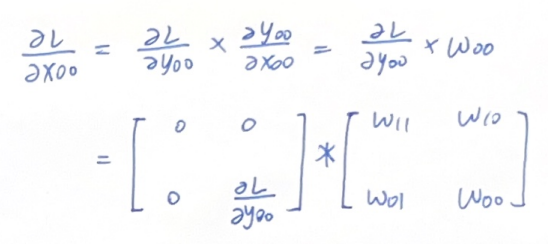 ∂L/∂x00 = ∂L/∂y00 × ∂y00/∂x00 = ∂L/∂y00 × w00
= [ 0 0 ; 0 ∂L/∂y00 ] * [ w11 w10 ; w01 w00 ]